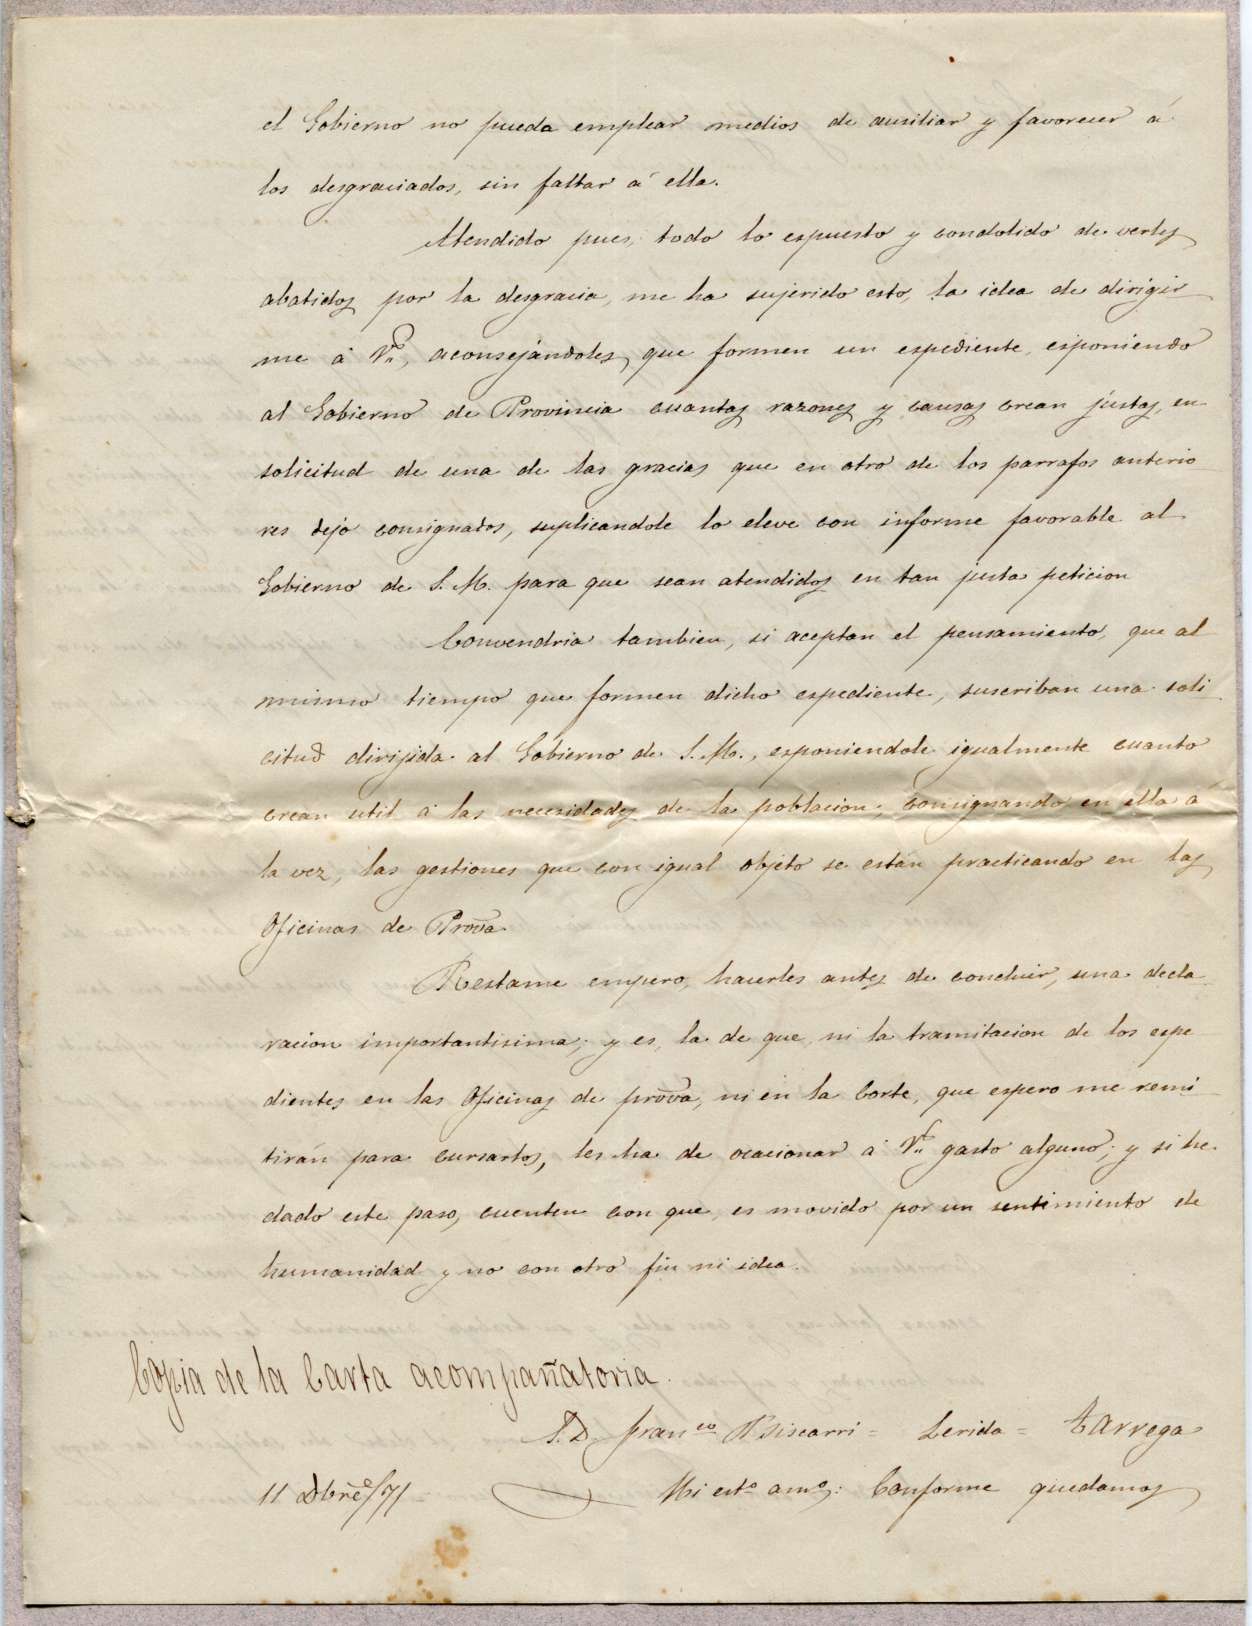 el Gobierno no pueda emplear medios de ausiliar y favorecer á
los desgraciados, sin faltar á ella.
Atendido pues, todo lo espuesto y condolido de verles
abatidos por la desgracia, me ha sujerido esto, la idea de dirigir
me á V.s, aconsejándoles, que formen un espediente, esponiendo
al Gobierno de Provincia cuantas razones y causas crean justas, en
solicitud de una de las gracias que en otro de los parrafos anterio
res dejo consignados, suplicandole lo eleve con informe favorable al
Gobierno de S. M. para que sean atendidos en tan justa peticion
Convendria tambien, si aceptan el pensamiento, que al
mismo tiempo que formen dicho espediente, suscriban una soli
citud dirijida al Gobierno de S. M., esponiendole igualmente cuanto
crean util á las necesidades de la poblacion, consignando en ella á
la vez, las gestiones que con igual objeto se están practicando en las
Oficinas de Prova.
Restame empero, hacerles antes de concluir, una decla
racion importantisima, y es, la de que, ni la tramitacion de los espe
dientes en las Oficinas de prova, ni en la Corte, que espero me remi
tirán para cursarlos, les ha de ocacionar á V.s gasto alguno; y si he
dado este paso, cuenten con que, es movido por un sentimiento de
humanidad y no con otro fin ni idea.
Copia de la Carta acompañatoria.
S. D. Franco Biscarri = Lerida = Tarrega
11 Dbre/71 Mi esto amo: Conforme quedamos